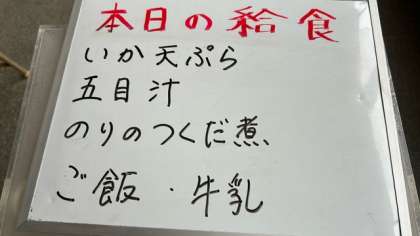 本日の給食
いか天ぷら
五目汁
のりのつくだ煮
ご飯・牛乳